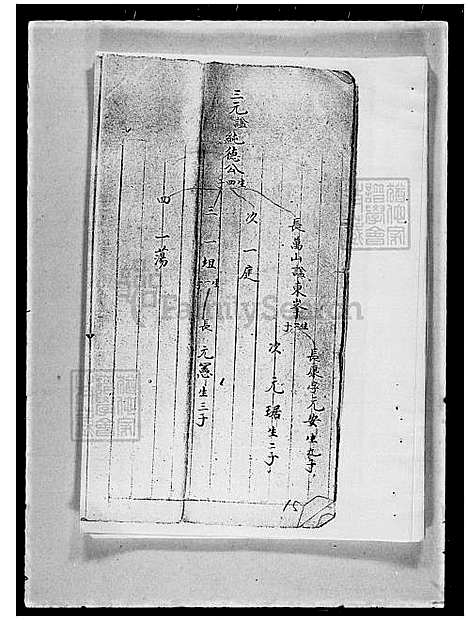 三元諡純德公生四子
長萬山諡東峯生二子
長康字元安生九子
次元琚生二子
次一庭
三一坦生一子
長元憲生三子
四一蕩
15
FamilySearch